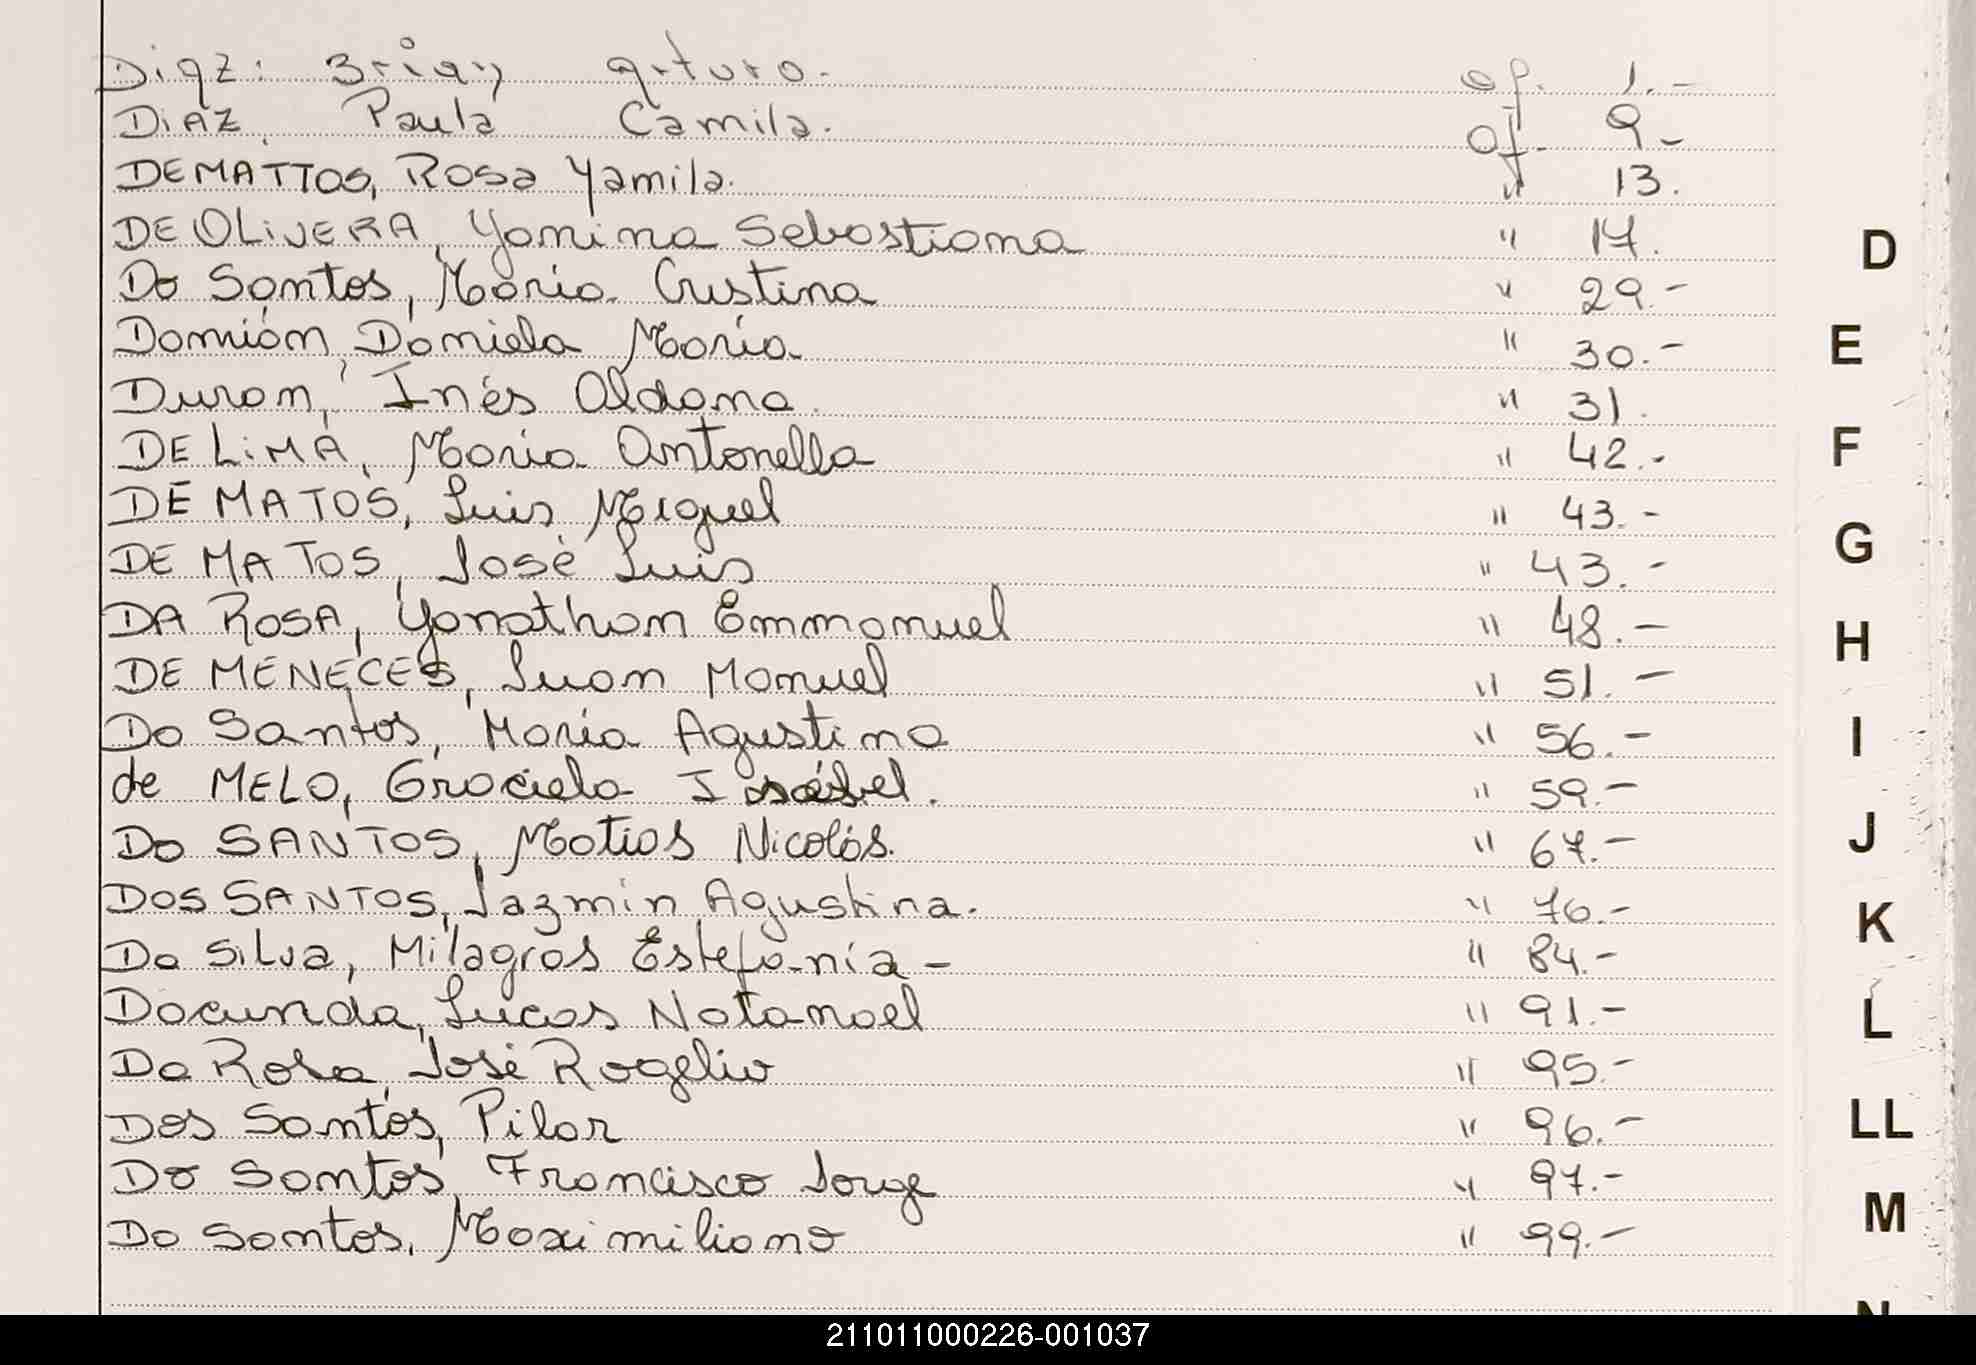 Diaz: Brian arturo. of. 1.-
DiAZ, Paula Camila. of. 9-
DEMATTOS, Rosa Yamila. " 13.
DE OLiVERA, Yanina Sebastiana " 17.
Do Santos, María Cristina " 29.-
Damián, Daniela María " 30.-
Duran, Inés Aldana. " 31.
DE LiMA, María Antonella " 42.-
DE MATOS, Luis Miguel " 43.-
DE MATOS, José Luis " 43.-
DA ROSA, Yonathan Emmanuel " 48.-
DE MENECES, Juan Manuel " 51.-
Do Santos, María Agustina " 56.-
de MELO, Graciela Isabel. " 59.-
Do SANTOS, Matias Nicolás. " 67.-
DOS SANTOS, Jazmín Agustina. " 76.-
Da Silva, Milagros Estefanía- " 84.-
Dacunda, Lucas Natanael " 91.-
Da Rosa, José Rogelio " 95.-
Dos Santos, Pilar " 96.-
Do Santos, Francisco Jorge " 97.-
Do Santos, Maximiliano " 99.-
D
E
F
G
H
I
J
K
L
LL
M
N
211011000226-001037